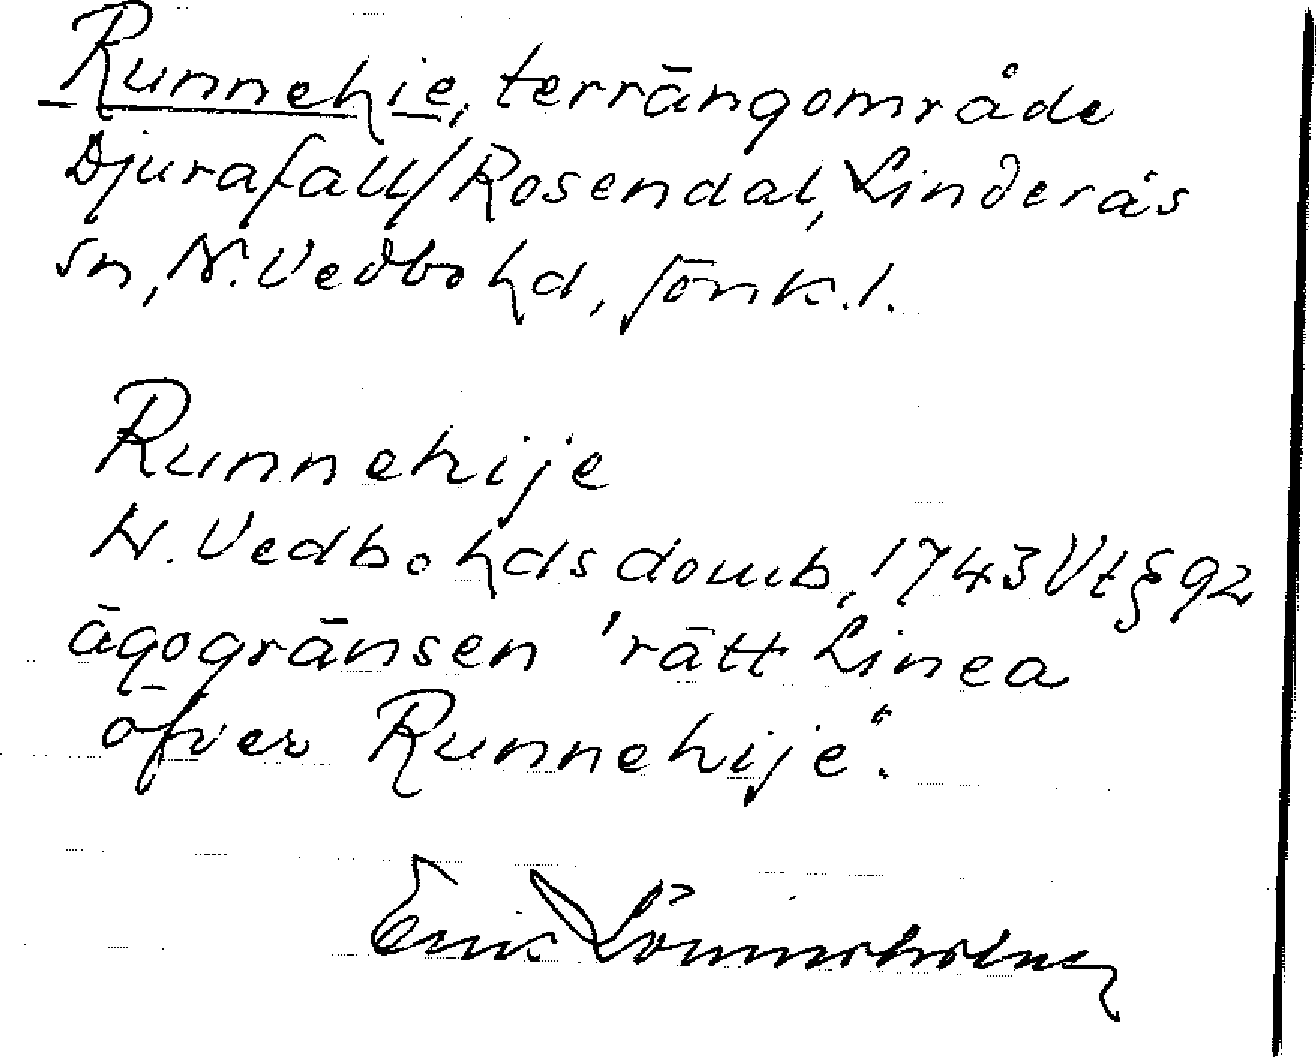 Runnehie, terrängområde
Djurafall/Rosendal, Linderås
sn, N. Vedbo hd, Jönk. l.
Runnehije
N. Vedbo hds domb, 1743 Vt § 92
ägogränsen "rätt Linea
öfver Runnehije".
Erik Lönnerholm